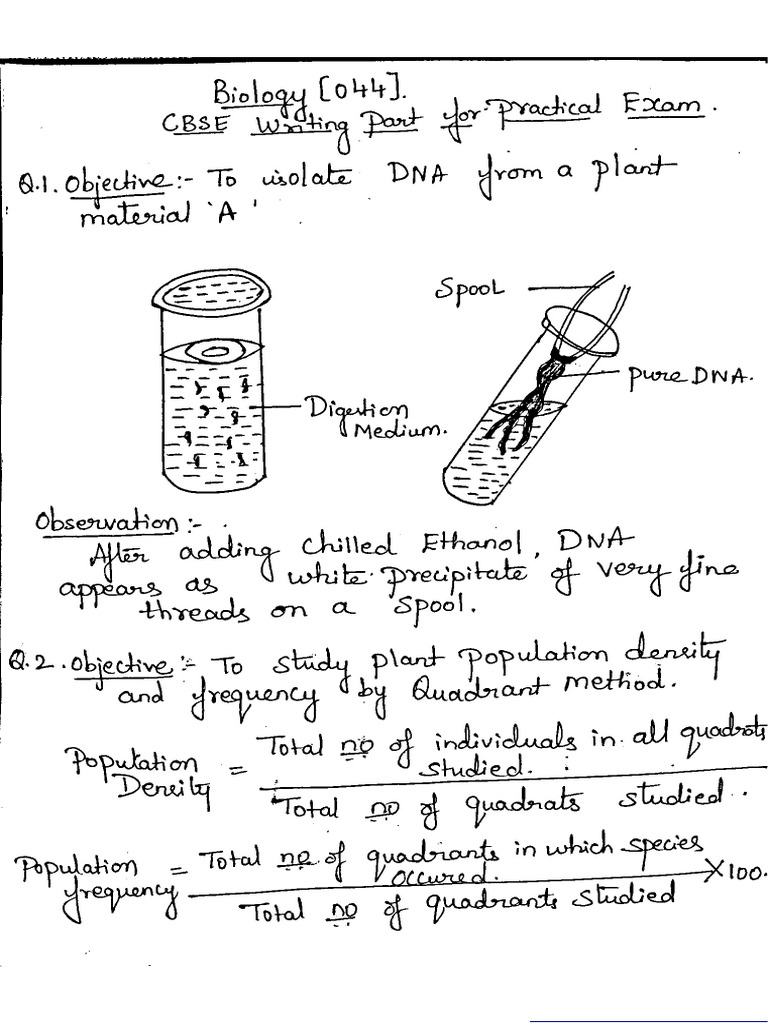 Biology [044].
CBSE Writing Part for Practical Exam.
Q.1. Objective:- To isolate DNA from a plant
material 'A'
Spool
pure DNA.
Digestion
Medium.
Observation:-
After adding chilled Ethanol, DNA
appears as white precipitate of very fine
threads on a spool.
Q.2. Objective:- To study plant population density
and frequency by Quadrant method.
Population Density = Total no of individuals in all quadrats
studied.
Total no of quadrats studied.
Population frequency = Total no of quadrants in which species
occured.
×100.
Total no of quadrants studied